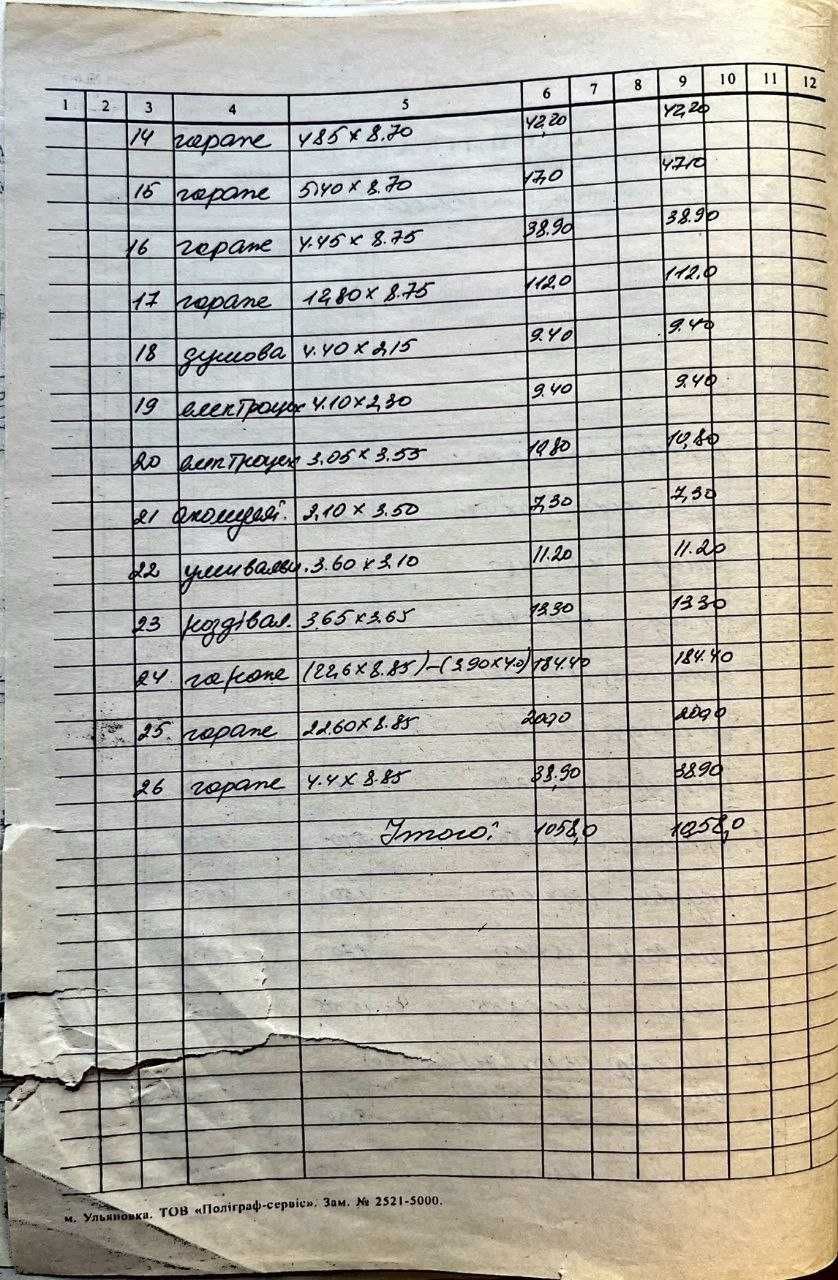 1 2 3 4 5 6 7 8 9 10 11 12
14 гараж 4.85 x 8.70 42,20 42,20
15 гараж 5.40 x 8.70 47,0 47.10
16 гараж 4.45 x 8.75 38.90 38.90
17 гараж 12,80 x 8.75 112.0 112.0
18 душова 4.40 x 2,15 9.40 9.40
19 електроцех 4.10 x 2,30 9.40 9.40
20 електроцех 3.05 x 3.55 10,80 10,80
21 2,10 x 3.50 7,30 7,30
22 умивальн. 3.60 x 3.10 11.20 11.20
23 роздівал. 3.65 x 3.65 13.30 13.30
24 гараж (22,6 x 8.85) – (3.90 x 4.0) 184.40 184.40
25 гараж 22.60 x 8.85 200,0 200,0
26 гараж 4.4 x 8.85 38,90 38.90
Итого: 1058,0 1058,0
м. Ульяновка. ТОВ «Поліграф-сервіс». Зам. № 2521-5000.